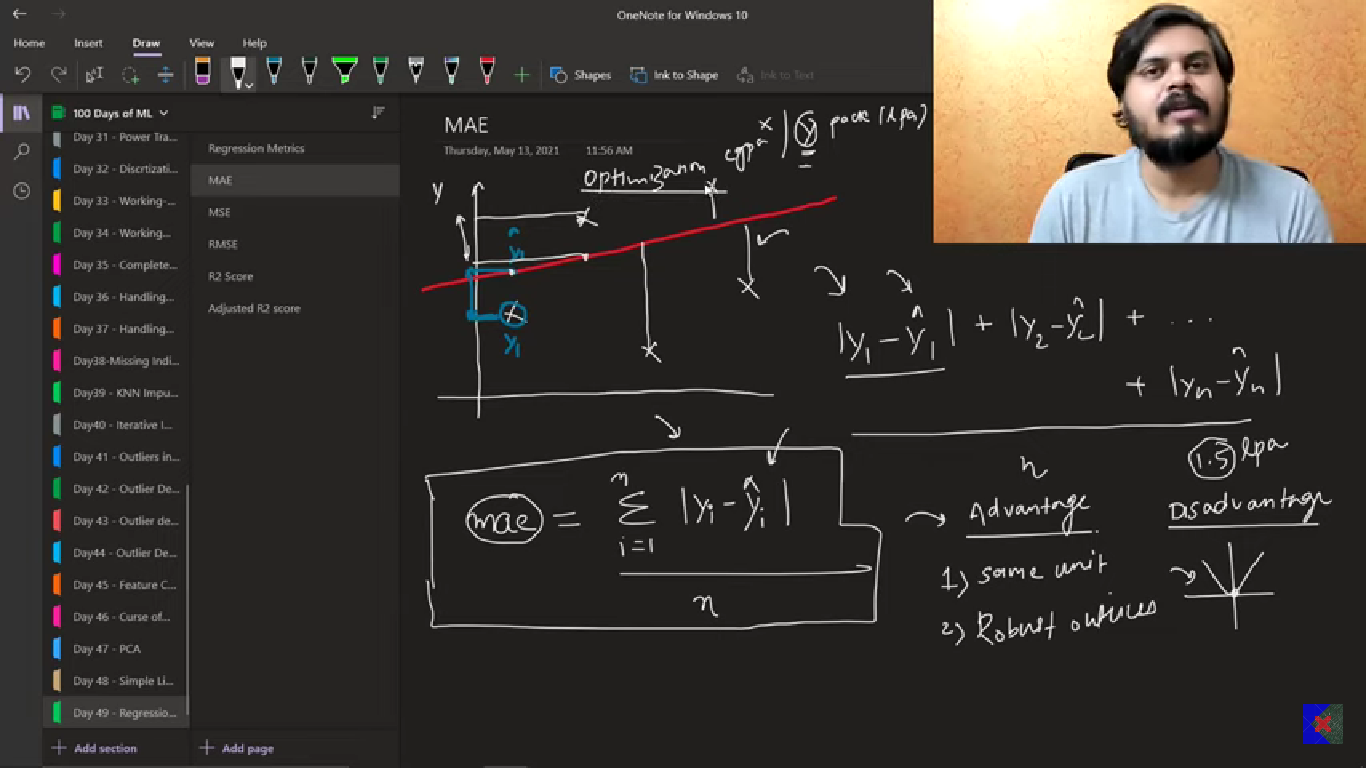 OneNote for Windows 10
Home Insert Draw View Help
Shapes Ink to Shape Ink to Text
100 Days of ML
Day 31 - Power Tra...
Day 32 - Discrtizati...
Day 33 - Working-...
Day 34 - Working...
Day 35 - Complete...
Day 36 - Handling...
Day 37 - Handling...
Day38-Missing Indi...
Day39 - KNN Impu...
Day40 - Iterative I...
Day 41 - Outliers in...
Day 42 - Outlier De...
Day 43 - Outlier de...
Day44 - Outlier De...
Day 45 - Feature C...
Day 46 - Curse of...
Day 47 - PCA
Day 48 - Simple Li...
Day 49 - Regressio...
Add section
Regression Metrics
MAE
MSE
RMSE
R2 Score
Adjusted R2 score
Add page
MAE
Thursday, May 13, 2021 11:56 AM
x | y
cgpa (lpa)
Optimization
y
ŷ₁
y₁
|y₁ - ŷ₁| + |y₂ - ŷ₂| + ...
+ |yn - ŷn|
n
1.5 lpa
mae = n Σ i=1 |yi - ŷi|
n
Advantage
1) same unit
2) Robust
Disadvantage